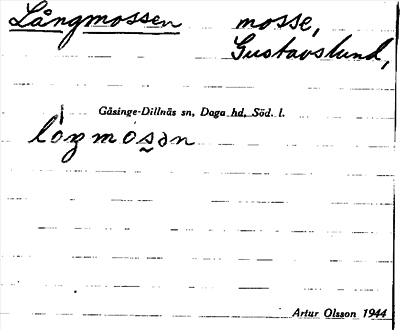 Långmossen mosse,
Gustavslund,
Gåsinge-Dillnäs sn, Daga hd, Söd. l.
lóŋmos̰ən
Artur Olsson 1944